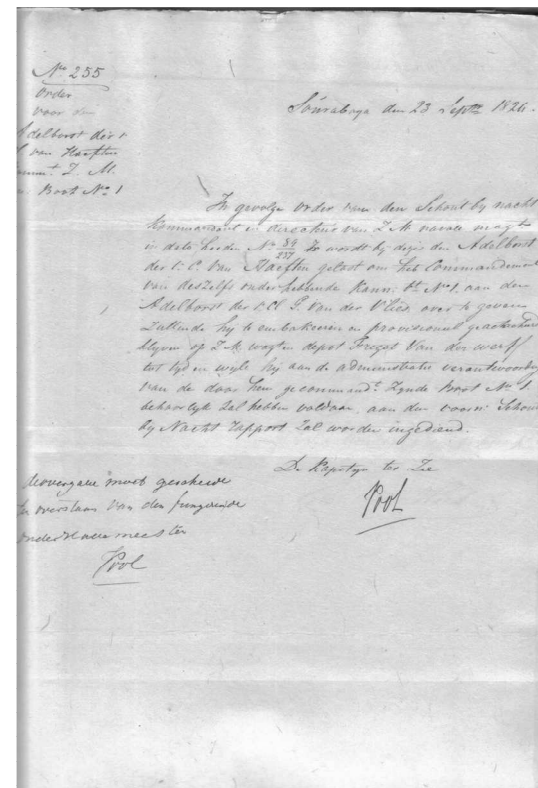 No 255
Order
voor den
Adelborst der 1
C. van Haeften
Z. M.
Boot No 1
Sourabaya den 23 Septr 1826.
In gevolge order van den Schout by nacht
Kommandant en directeur van Z M navale magt
in dato heden No 84/237 Zo wordt by deze den Adelborst
der 1. C. van Haeften gelast om het Commandement
van deszelfs onder hebbende Kann: Bt No 1. aan den
Adelborst der 1 Cl P. van der Vlies, over te geven
zullende hy te embarkeeren en provisioneel
blyven op Z. M. wagten depot Fregat Van der werff
tot tyd en wyle hy aan de administratie
van de door hem gecommandt Zynde Boot No 1.
behoorlyk zal hebben voldaan, aan den voorn: Schout
by Nacht rapport zal worden ingediend.
De Kapityn ter Zee
Pool
de overgave moet geschiede
ten overstaan van den fungeerende
onder
Pool